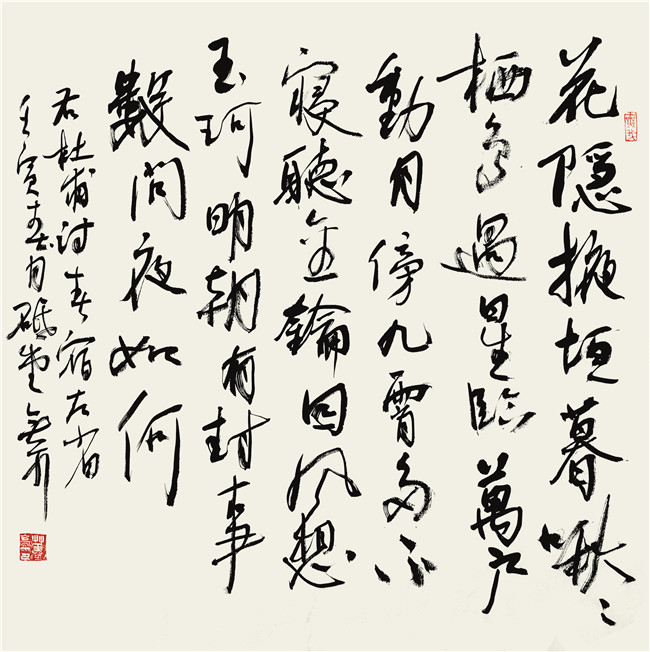 花隱掖垣暮啾〻
栖鳥過星臨萬户
動月傍九霄多不
寢聽金鑰因風想
玉珂明朝有封事
數問夜如何
右杜甫詩春宿左省
壬寅春月